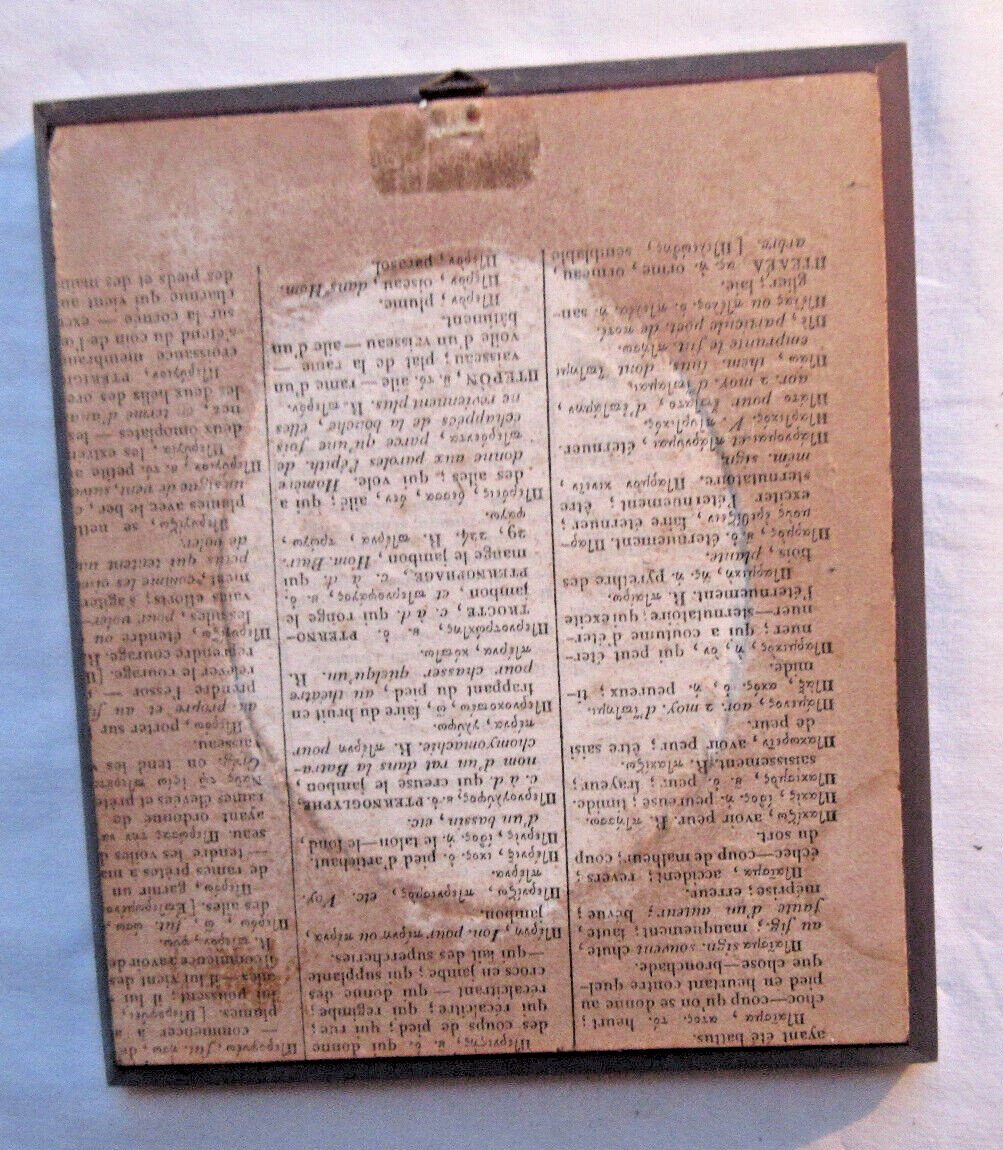 ayant été battus.
Πταῖσμα, ατος, τὸ, heurt;
choc—coup qu'on se donne au
pied en heurtant contre quel-
que chose—bronchade.
Πταῖσμα sign. souvent chute,
au fig.; manquement; faute,
faute d'un auteur; bévue;
méprise; erreur.
Πταῖσμα, accident; revers;
échec—coup de malheur; coup
du sort.
Πτακάζω, avoir peur. R. πτήσσω.
Πτακὶς, ίδος, ἡ, peureuse; timide.
Πτακισμὸς, οῦ, ὁ, peur; frayeur;
saisissement. R. πτακίζω.
Πτακωρεῖν, avoir peur; être saisi
de peur.
Πτάμενος, aor. 2 moy. d'ἵπταμαι.
Πτὰξ, ακὸς, ὁ, ἡ, peureux; ti-
mide.
Πταρμικὸς, ὴ, ὸν, qui peut éter-
nuer; qui a coutume d'éter-
nuer—sternutatoire; qui excite
l'éternuement. R. πταίρω.
Πταρμικὴ, ῆς, ἡ, pyrèthre des
bois, plante.
Πταρμὸς, οῦ, ὁ, éternuement. Πταρ-
μοὺς ἐρεθίζειν, faire éternuer;
exciter l'éternuement; être
sternutatoire. Πταρμὸν κινεῖν,
mêm. sign.
Πταρνυμαι et πτάρνυμαι, éternuer.
Πταρτικός. V. πταρμικός.
Πτάτο pour ἔπτατο, d'ἐπτάμην,
aor. 2 moy. d'ἵπταμαι.
Πτάω, them. inus. dont ἵπταμαι
emprunte le fut. πτήσω.
Πτὲ, particule de poët. de ποτέ.
Πτέλας ou πτέλος, ὁ, πτελέα, ἡ, san-
glier; laie.
ΠΤΕΛΕΑ, ας, ἡ, orme, ormeau,
arbre. [Πτελεώδης, semblable
Πτερνιστὴς, οῦ, ὁ, qui donne
des coups de pied; qui rue;
qui récalcitre; qui regimbe;
récalcitrant — qui donne des
crocs en jambe; qui supplante
—qui fait des supercheries.
Πτέρνη, Ion. pour πέρνη ou πέρνα,
jambon.
Πτερνίζω, πτερνισμὸς, etc. Voy.
πτέρνα.
Πτέρνιξ, ικος, ὁ, pied d'artichaut.
Πτερνὶς, ίδος, ἡ, le talon—le fond,
d'un bassin, etc.
Πτερνογλύφος, ου, ὁ, PTERNOGLYPHE,
c. à d. qui creuse le jambon,
nom d'un rat dans la Batra-
chomyomachie. R. πτέρνη pour
πέρνα, γλύφω.
Πτερνοκοπέω, ῶ, faire du bruit en
frappant du pied, au théâtre
pour chasser quelqu'un. R.
πτέρνα, κόπτω.
Πτερνοτρώκτης, ου, ὁ, PTERNO-
TROCTE, c. à d. qui ronge le
jambon, et πτερνοφάγος, ου, ὁ,
PTERNOPHAGE, c. à d. qui
mange le jambon, Hom. Batr.
29, 224. R. πτέρνα, τρώγω,
φάγω.
Πτερόεις, όεσσα, όεν, ailé; qui a
des ailes; qui vole. Homère
donne aux paroles l'épith. de
πτερόεντα, parce qu'une fois
échappées de la bouche, elles
ne reviennent plus. R. πτερόν.
ΠΤΕΡΟΝ, οῦ, τὸ, aile — rame d'un
vaisseau; plat de la rame —
voile d'un vaisseau —aile d'un
bâtiment.
Πτερὸν, plume.
Πτερὸν, oiseau, dans Hom.
Πτερὸν, parasol.
Πτερυγέω, fut. ήσω, de
— commencer à a
plumes. [Πτερυγεῖ,
lui poussent; il l
ailes—il lui vient des
il commence à avoir de
R. πτερὸν, φύω.
Πτερόω, ῶ, fut. ώσω, me
des ailes. [Ἐπτερωμένος
Πτερόω, garnir un
de rames prêtes à ma
— tendre les voiles d
seau. Πτερώσας τὴν να
ayant ordonné de
rames élevées et prête
Ναῦς τῷ ἱστίῳ πτεροῦτ
Orig. on tend les v
vaisseau.
Πτερόω, porter sur
au propre et au fi
prendre l'essor —
relever le courage. [Π
reprendre courage. R
Πτερυγίζω, étendre ou
les ailes, pour voler—
vains efforts; s'agiter
ment, comme les oise
petits qui tentent inu
de voler.
Πτερυγίζω, se nett
plumes avec le bec, c
un signe de vent, suiva
Πτερύγιον, ου, τὸ, petite ai
Πτερύγια, les extrém
deux omoplates — les
nez, en terme d'anat
de deux hélix des ore
Πτερύγιον, PTERIGI
croissance membraneu
s'étend du coin de l'œ
sur la cornée — exc
charnue qui vient au
des pieds et des mains